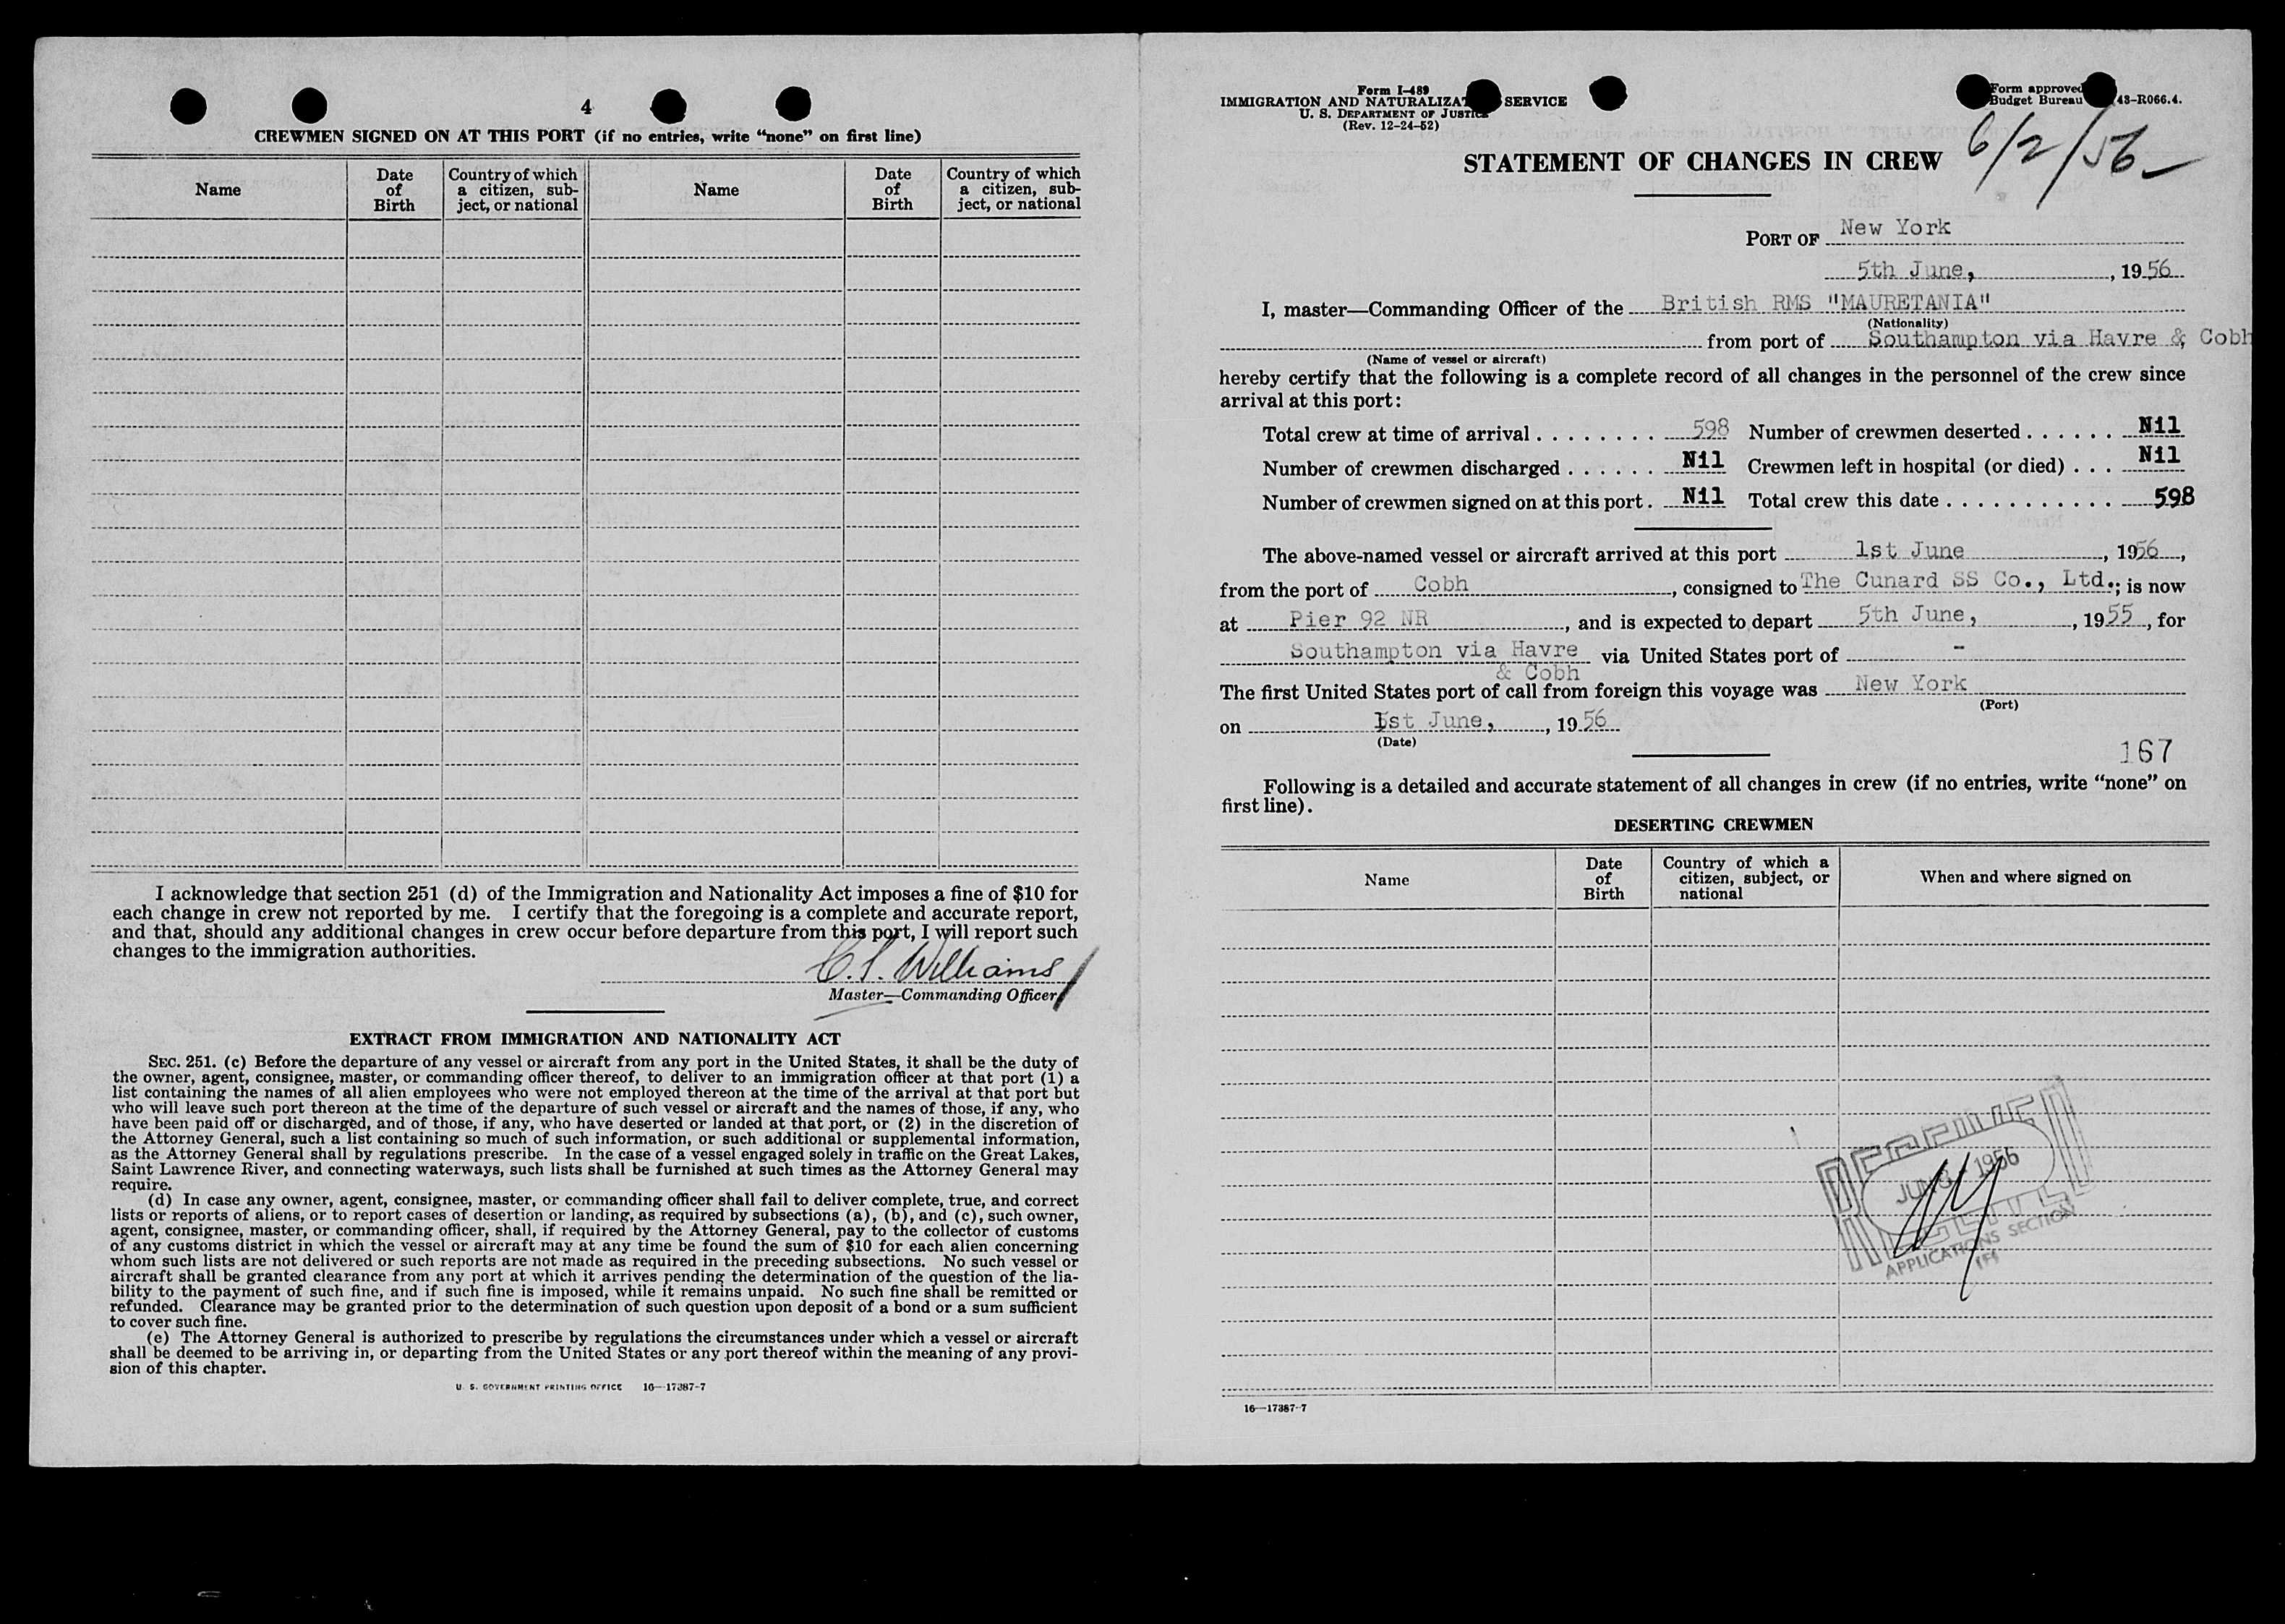 4
CREWMEN SIGNED ON AT THIS PORT (if no entries, write “none” on first line)
Name
Date of Birth
Country of which a citizen, subject, or national
Name
Date of Birth
Country of which a citizen, subject, or national
I acknowledge that section 251 (d) of the Immigration and Nationality Act imposes a fine of $10 for
each change in crew not reported by me. I certify that the foregoing is a complete and accurate report,
and that, should any additional changes in crew occur before departure from this port, I will report such
changes to the immigration authorities.
Williams
Master—Commanding Officer
EXTRACT FROM IMMIGRATION AND NATIONALITY ACT
SEC. 251. (c) Before the departure of any vessel or aircraft from any port in the United States, it shall be the duty of
the owner, agent, consignee, master, or commanding officer thereof, to deliver to an immigration officer at that port (1) a
list containing the names of all alien employees who were not employed thereon at the time of the arrival at that port but
who will leave such port thereon at the time of the departure of such vessel or aircraft and the names of those, if any, who
have been paid off or discharged, and of those, if any, who have deserted or landed at that port, or (2) in the discretion of
the Attorney General, such a list containing so much of such information, or such additional or supplemental information,
as the Attorney General shall by regulations prescribe. In the case of a vessel engaged solely in traffic on the Great Lakes,
Saint Lawrence River, and connecting waterways, such lists shall be furnished at such times as the Attorney General may
require.
(d) In case any owner, agent, consignee, master, or commanding officer shall fail to deliver complete, true, and correct
lists or reports of aliens, or to report cases of desertion or landing, as required by subsections (a), (b), and (c), such owner,
agent, consignee, master, or commanding officer, shall, if required by the Attorney General, pay to the collector of customs
of any customs district in which the vessel or aircraft may at any time be found the sum of $10 for each alien concerning
whom such lists are not delivered or such reports are not made as required in the preceding subsections. No such vessel or
aircraft shall be granted clearance from any port at which it arrives pending the determination of the question of the lia-
bility to the payment of such fine, and if such fine is imposed, while it remains unpaid. No such fine shall be remitted or
refunded. Clearance may be granted prior to the determination of such question upon deposit of a bond or a sum sufficient
to cover such fine.
(e) The Attorney General is authorized to prescribe by regulations the circumstances under which a vessel or aircraft
shall be deemed to be arriving in, or departing from the United States or any port thereof within the meaning of any provi-
sion of this chapter.
U. S. GOVERNMENT PRINTING OFFICE 16—17387-7
Form I-489
IMMIGRATION AND NATURALIZAT SERVICE
U. S. DEPARTMENT OF JUSTICE
(Rev. 12-24-52)
Form approved
Budget Bureau 43-R066.4.
6/2/56
STATEMENT OF CHANGES IN CREW
PORT OF New York
5th June, , 19 56
I, master—Commanding Officer of the British RMS "MAURETANIA"
(Nationality)
from port of Southampton via Havre & Cobh
(Name of vessel or aircraft)
hereby certify that the following is a complete record of all changes in the personnel of the crew since
arrival at this port:
Total crew at time of arrival . . . . . . . . 598 Number of crewmen deserted . . . . . . Nil
Number of crewmen discharged . . . . . . Nil Crewmen left in hospital (or died) . . . Nil
Number of crewmen signed on at this port . Nil Total crew this date . . . . . . . . . . . 598
The above-named vessel or aircraft arrived at this port 1st June , 1956 ,
from the port of Cobh , consigned to The Cunard SS Co., Ltd.; is now
at Pier 92 NR , and is expected to depart 5th June, , 1955 , for
Southampton via Havre via United States port of -
& Cobh
The first United States port of call from foreign this voyage was New York
(Port)
on 1st June, , 19 56
(Date)
167
Following is a detailed and accurate statement of all changes in crew (if no entries, write “none” on
first line).
DESERTING CREWMEN
Name
Date of Birth
Country of which a citizen, subject, or national
When and where signed on
1956
APPLICATIONS SECTION
16—17387-7